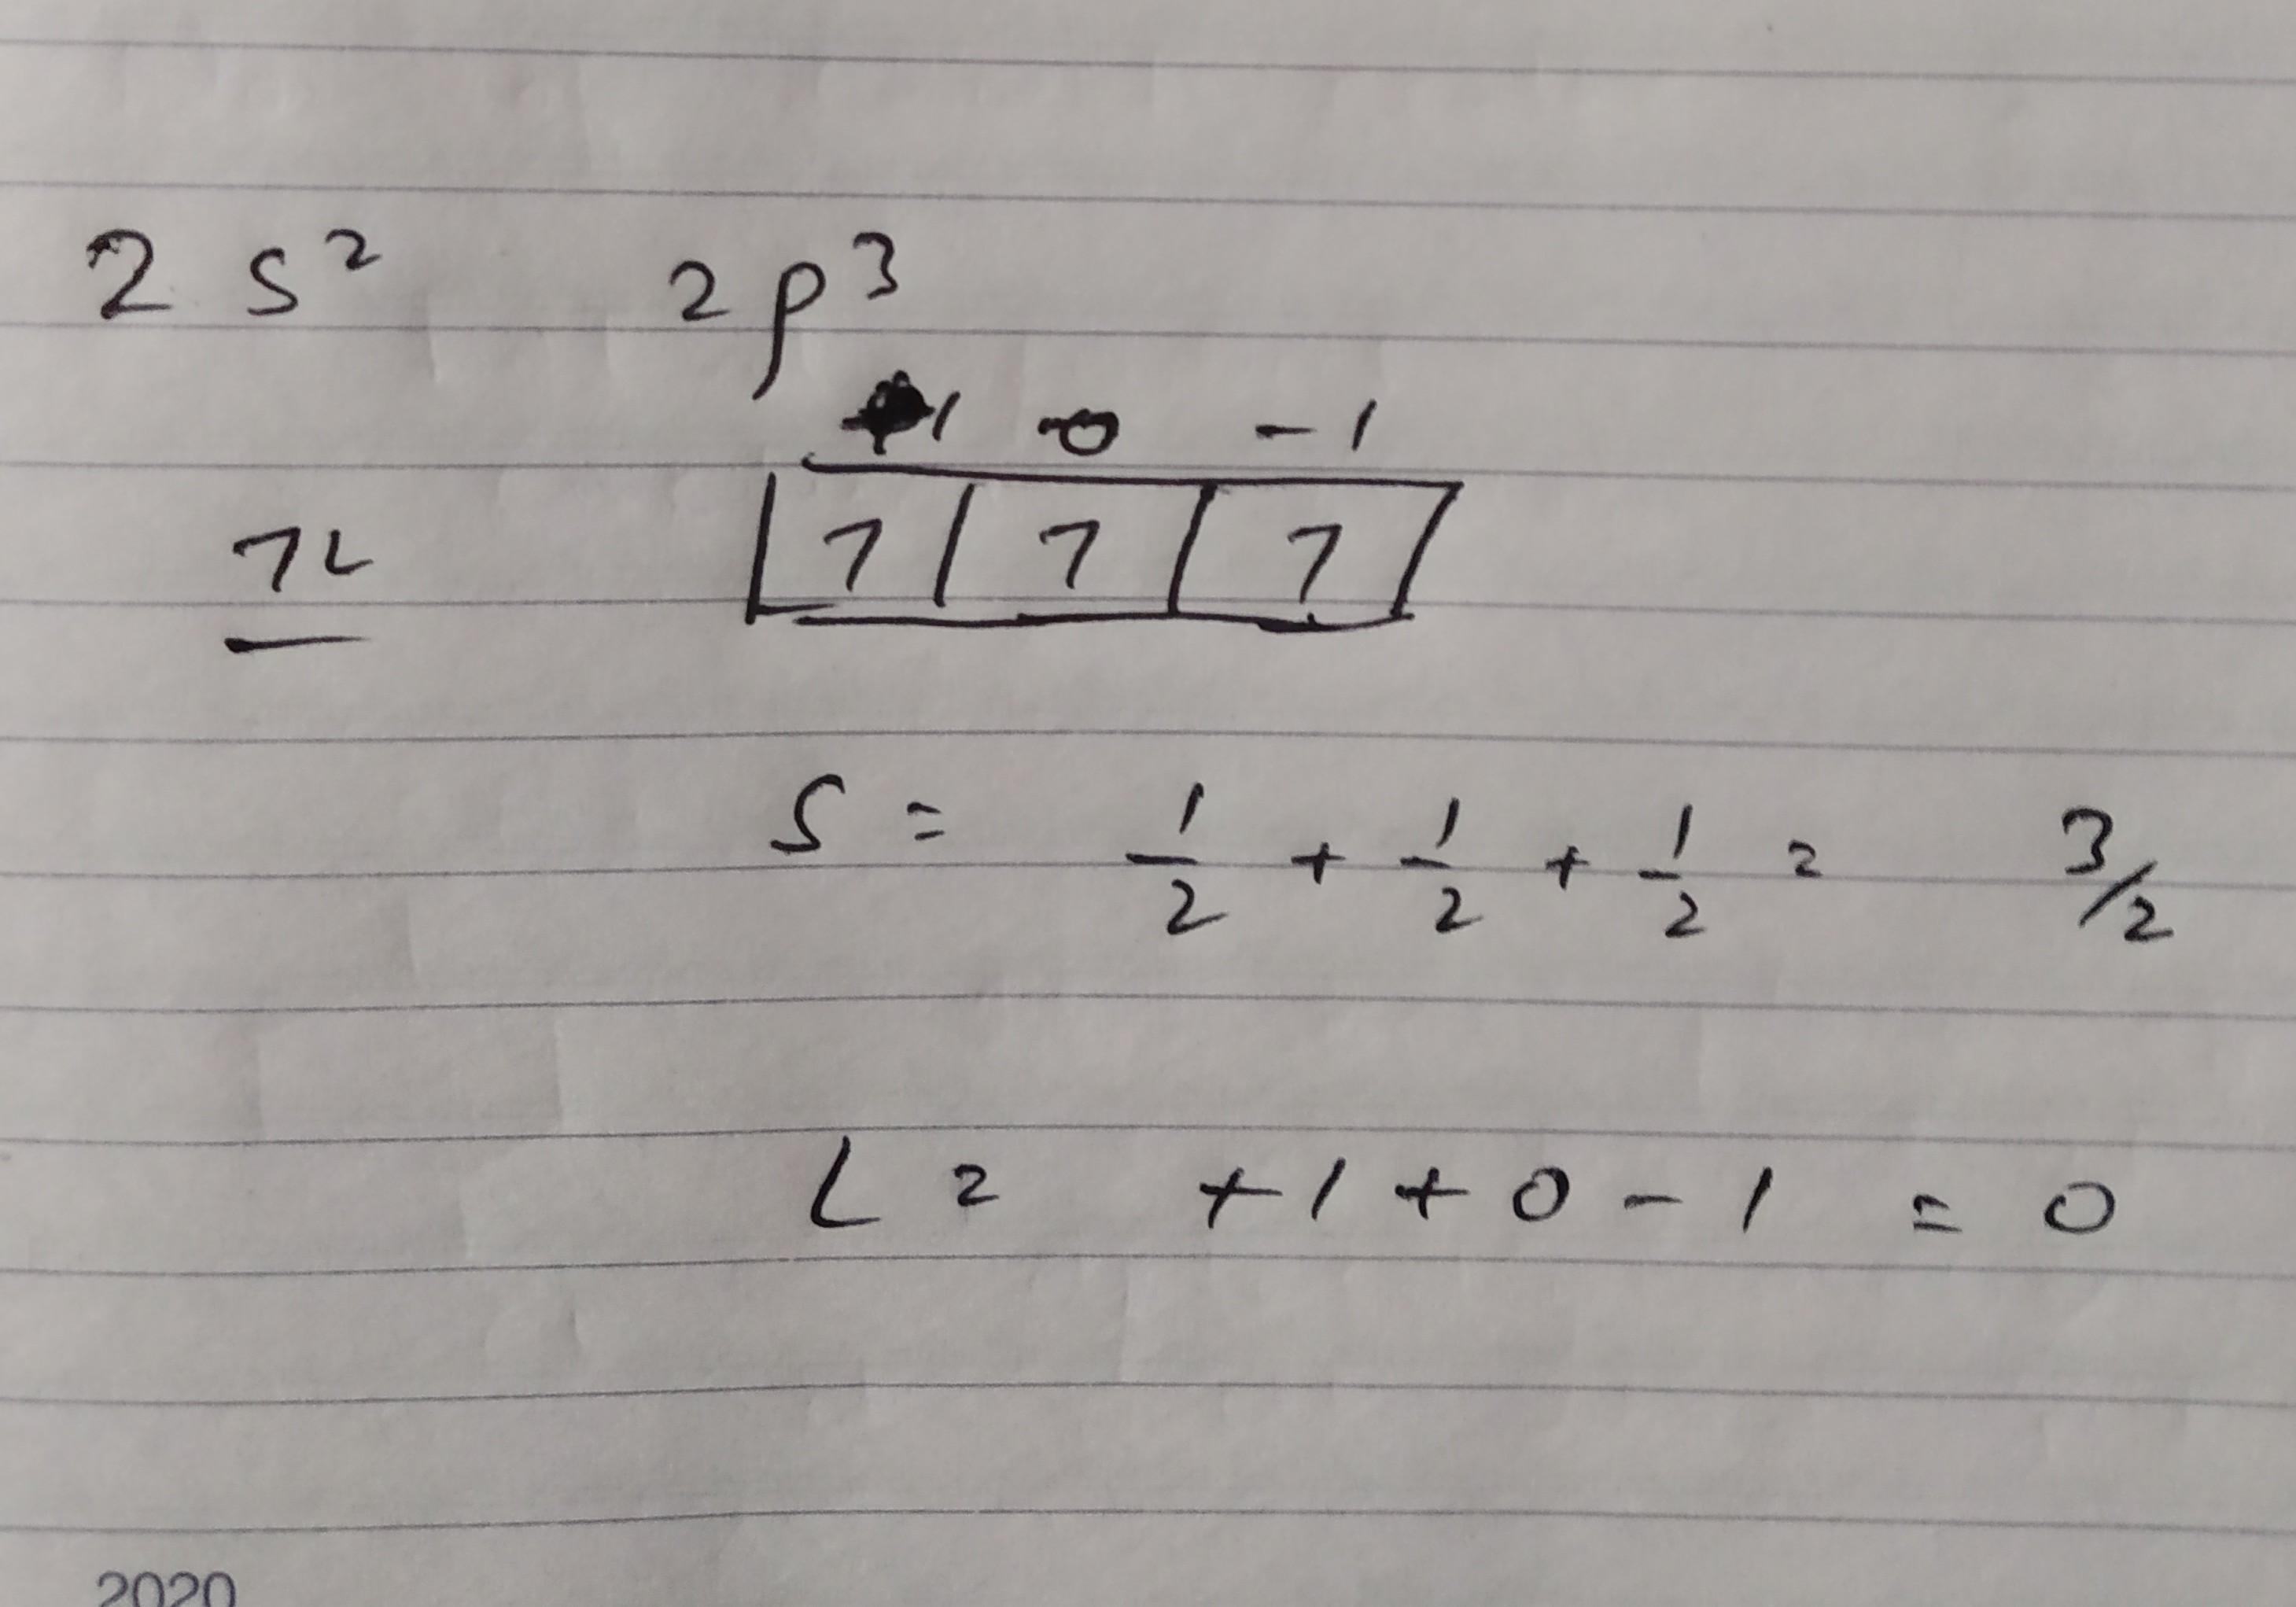 2 s² 2p³
+1 0 -1
↿⇂ 1 1 1
S = 1/2 + 1/2 + 1/2 = 3/2
L = +1 + 0 - 1 = 0
2020